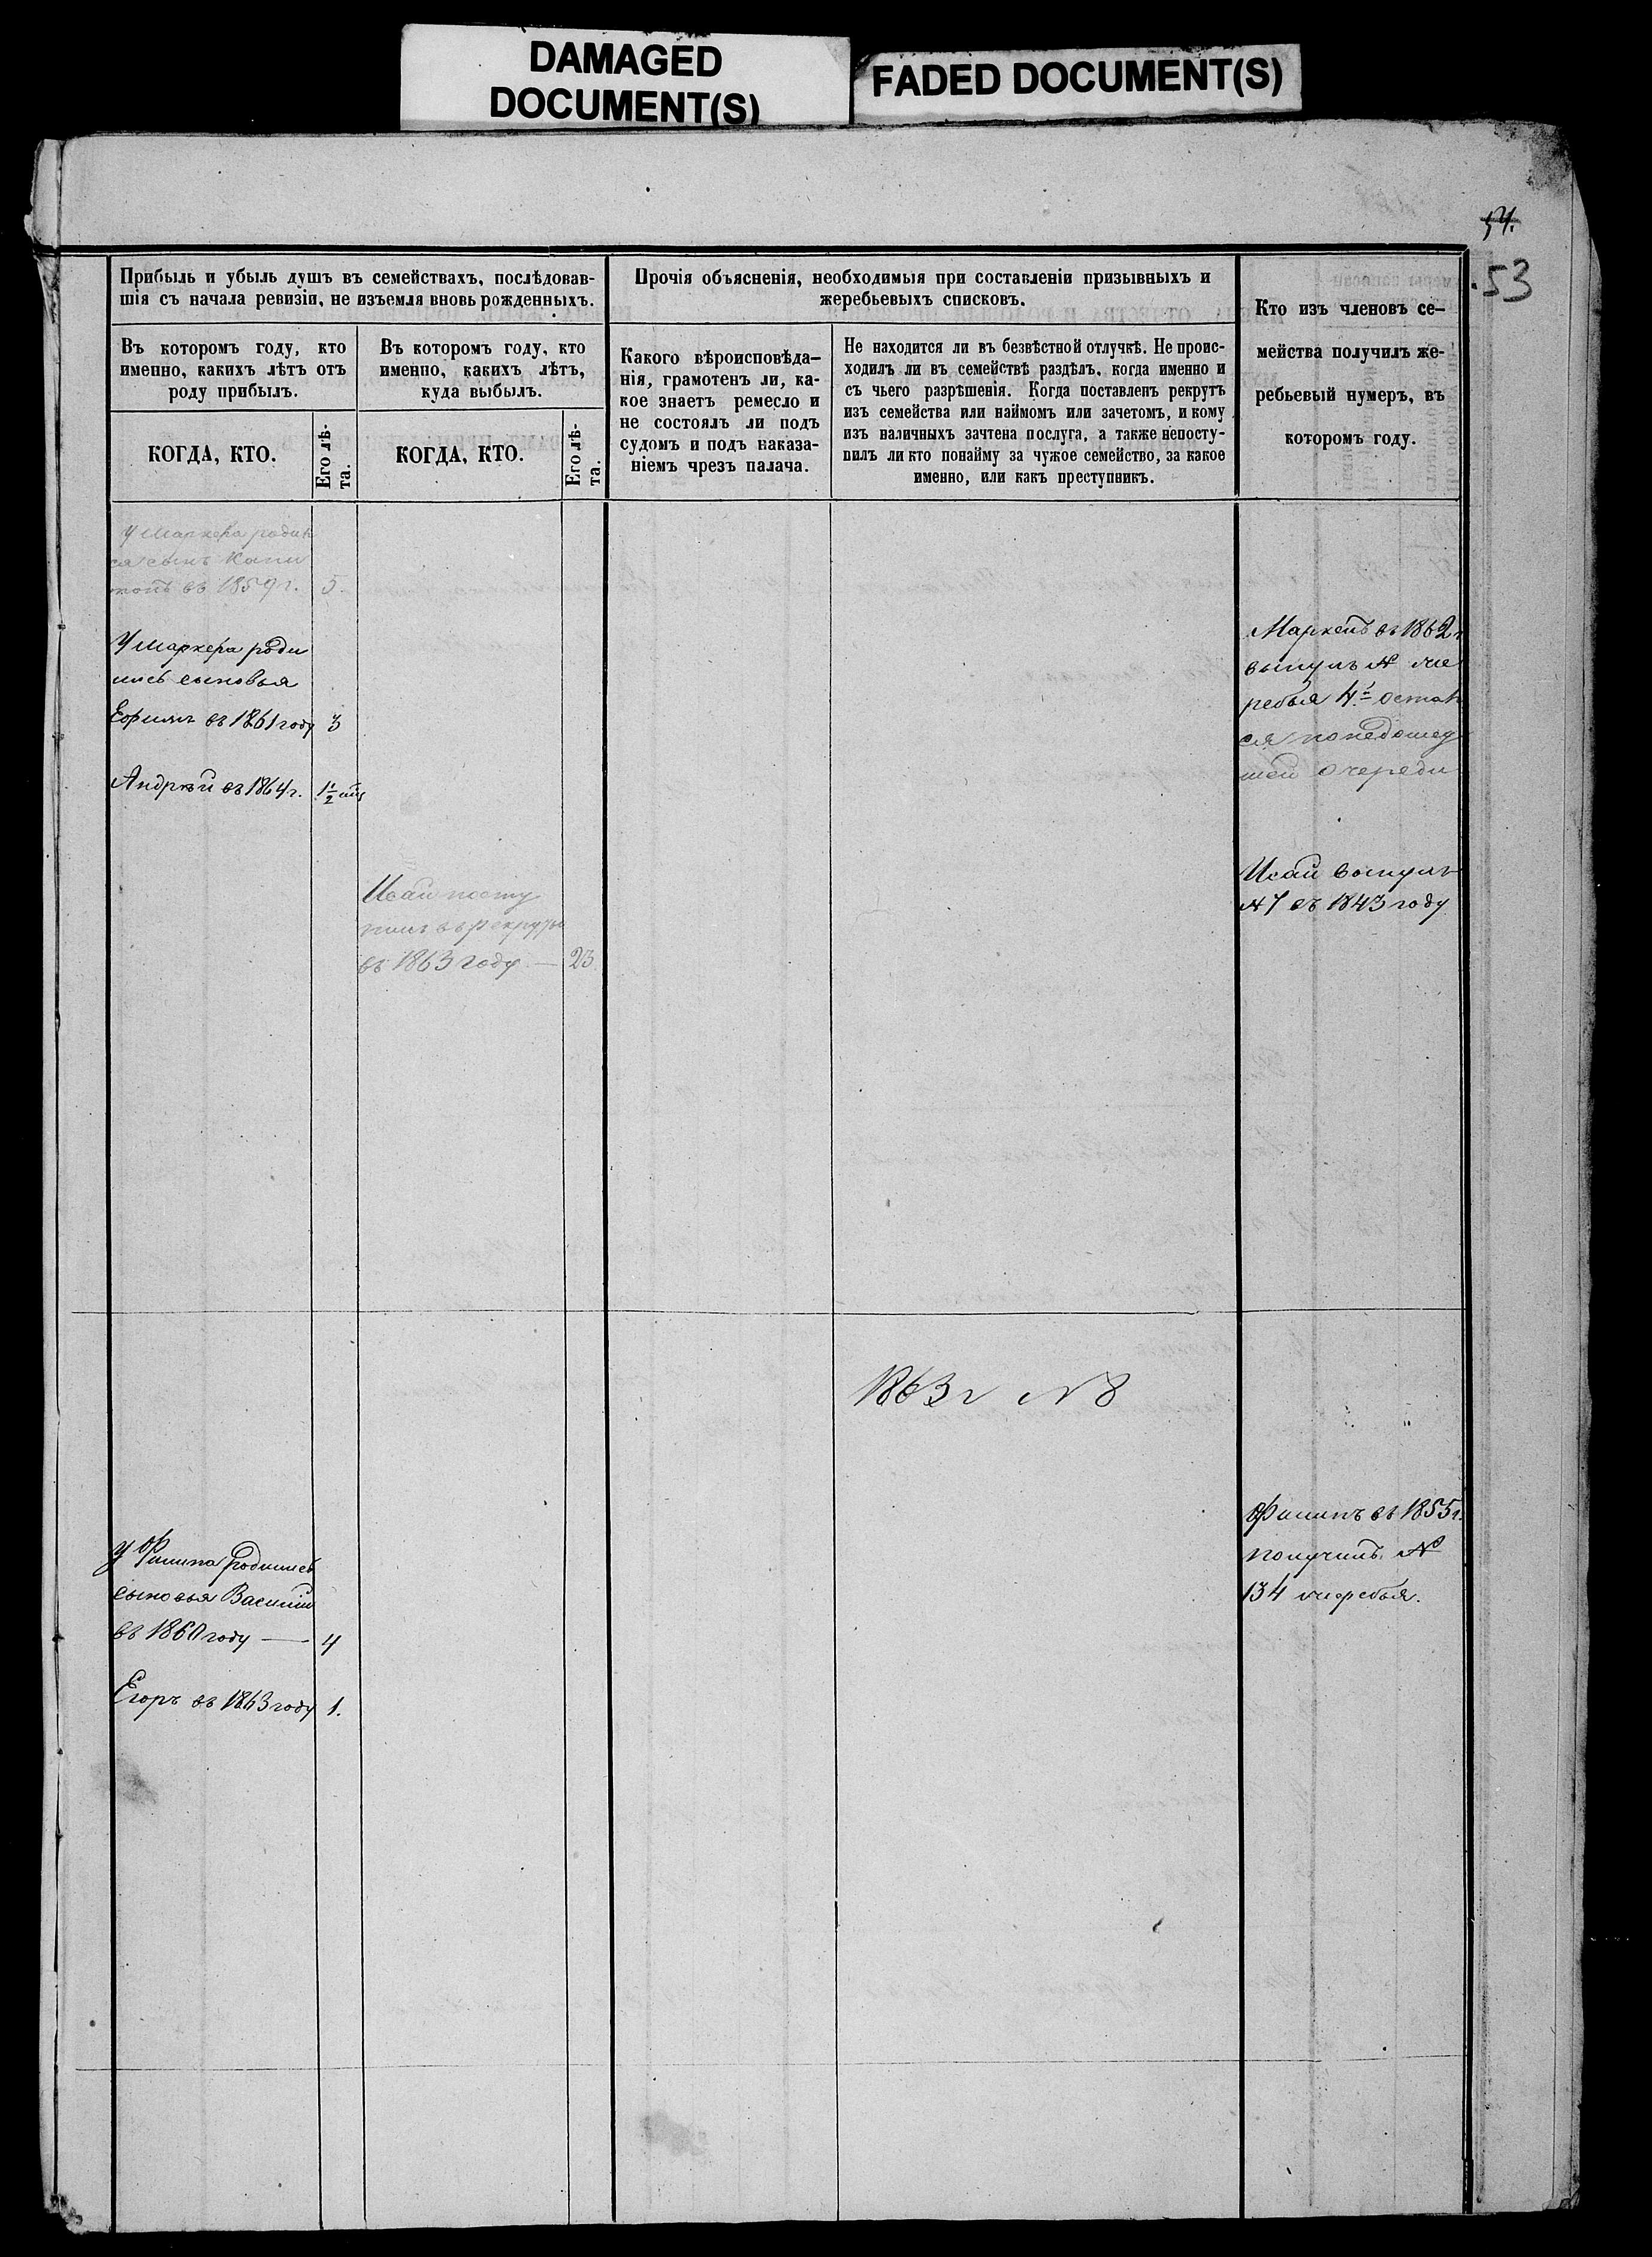 DAMAGED
DOCUMENT(S)
FADED DOCUMENT(S)
54.
53
Прибыль и убыль душъ въ семействахъ, послѣдовав-
шія съ начала ревизіи, не изъемля вновь рожденныхъ.
Въ которомъ году, кто
именно, какихъ лѣтъ отъ
роду прибылъ.
Въ которомъ году, кто
именно, какихъ лѣтъ,
куда выбылъ.
КОГДА, КТО.
Его лѣ-
та.
КОГДА, КТО.
Его лѣ-
та.
Прочія объясненія, необходимыя при составленіи призывныхъ и
жеребьевыхъ списковъ.
Какого вѣроисповѣда-
нія, грамотенъ ли, ка-
кое знаетъ ремесло и
не состоялъ ли подъ
судомъ и подъ наказа-
ніемъ чрезъ палача.
Не находится ли въ безвѣстной отлучкѣ. Не проис-
ходилъ ли въ семействѣ раздѣлъ, когда именно и
съ чьего разрѣшенія. Когда поставленъ рекрутъ
изъ семейства или наймомъ или зачетомъ, и кому
изъ наличныхъ зачтена послуга, а также непосту-
пилъ ли кто понайму за чужое семейство, за какое
именно, или какъ преступникъ.
Кто изъ членовъ се-
мейства получилъ же-
ребьевый нумеръ, въ
которомъ году.
У Маркела родил
ся сынъ Капи
тонъ въ 1859 г. 5.
У Маркела роди
лись сыновья
Ефимъ въ 1861 году 3
Андрѣй въ 1864 г. 1/2
Исай посту
пилъ въ рекруты
въ 1863 году — 23
Маркелъ въ 1862 г
вынулъ № же
ребья 4й остал
ся по недошед
шей очереди
Исай вынулъ
№ 7 въ 1843 году
1863 г № 8
Филипъ въ 1855 г.
получилъ №
134 жеребья.
У Филипа родились
сыновья Василий
въ 1860 году — 4
Егоръ въ 1863 году 1.